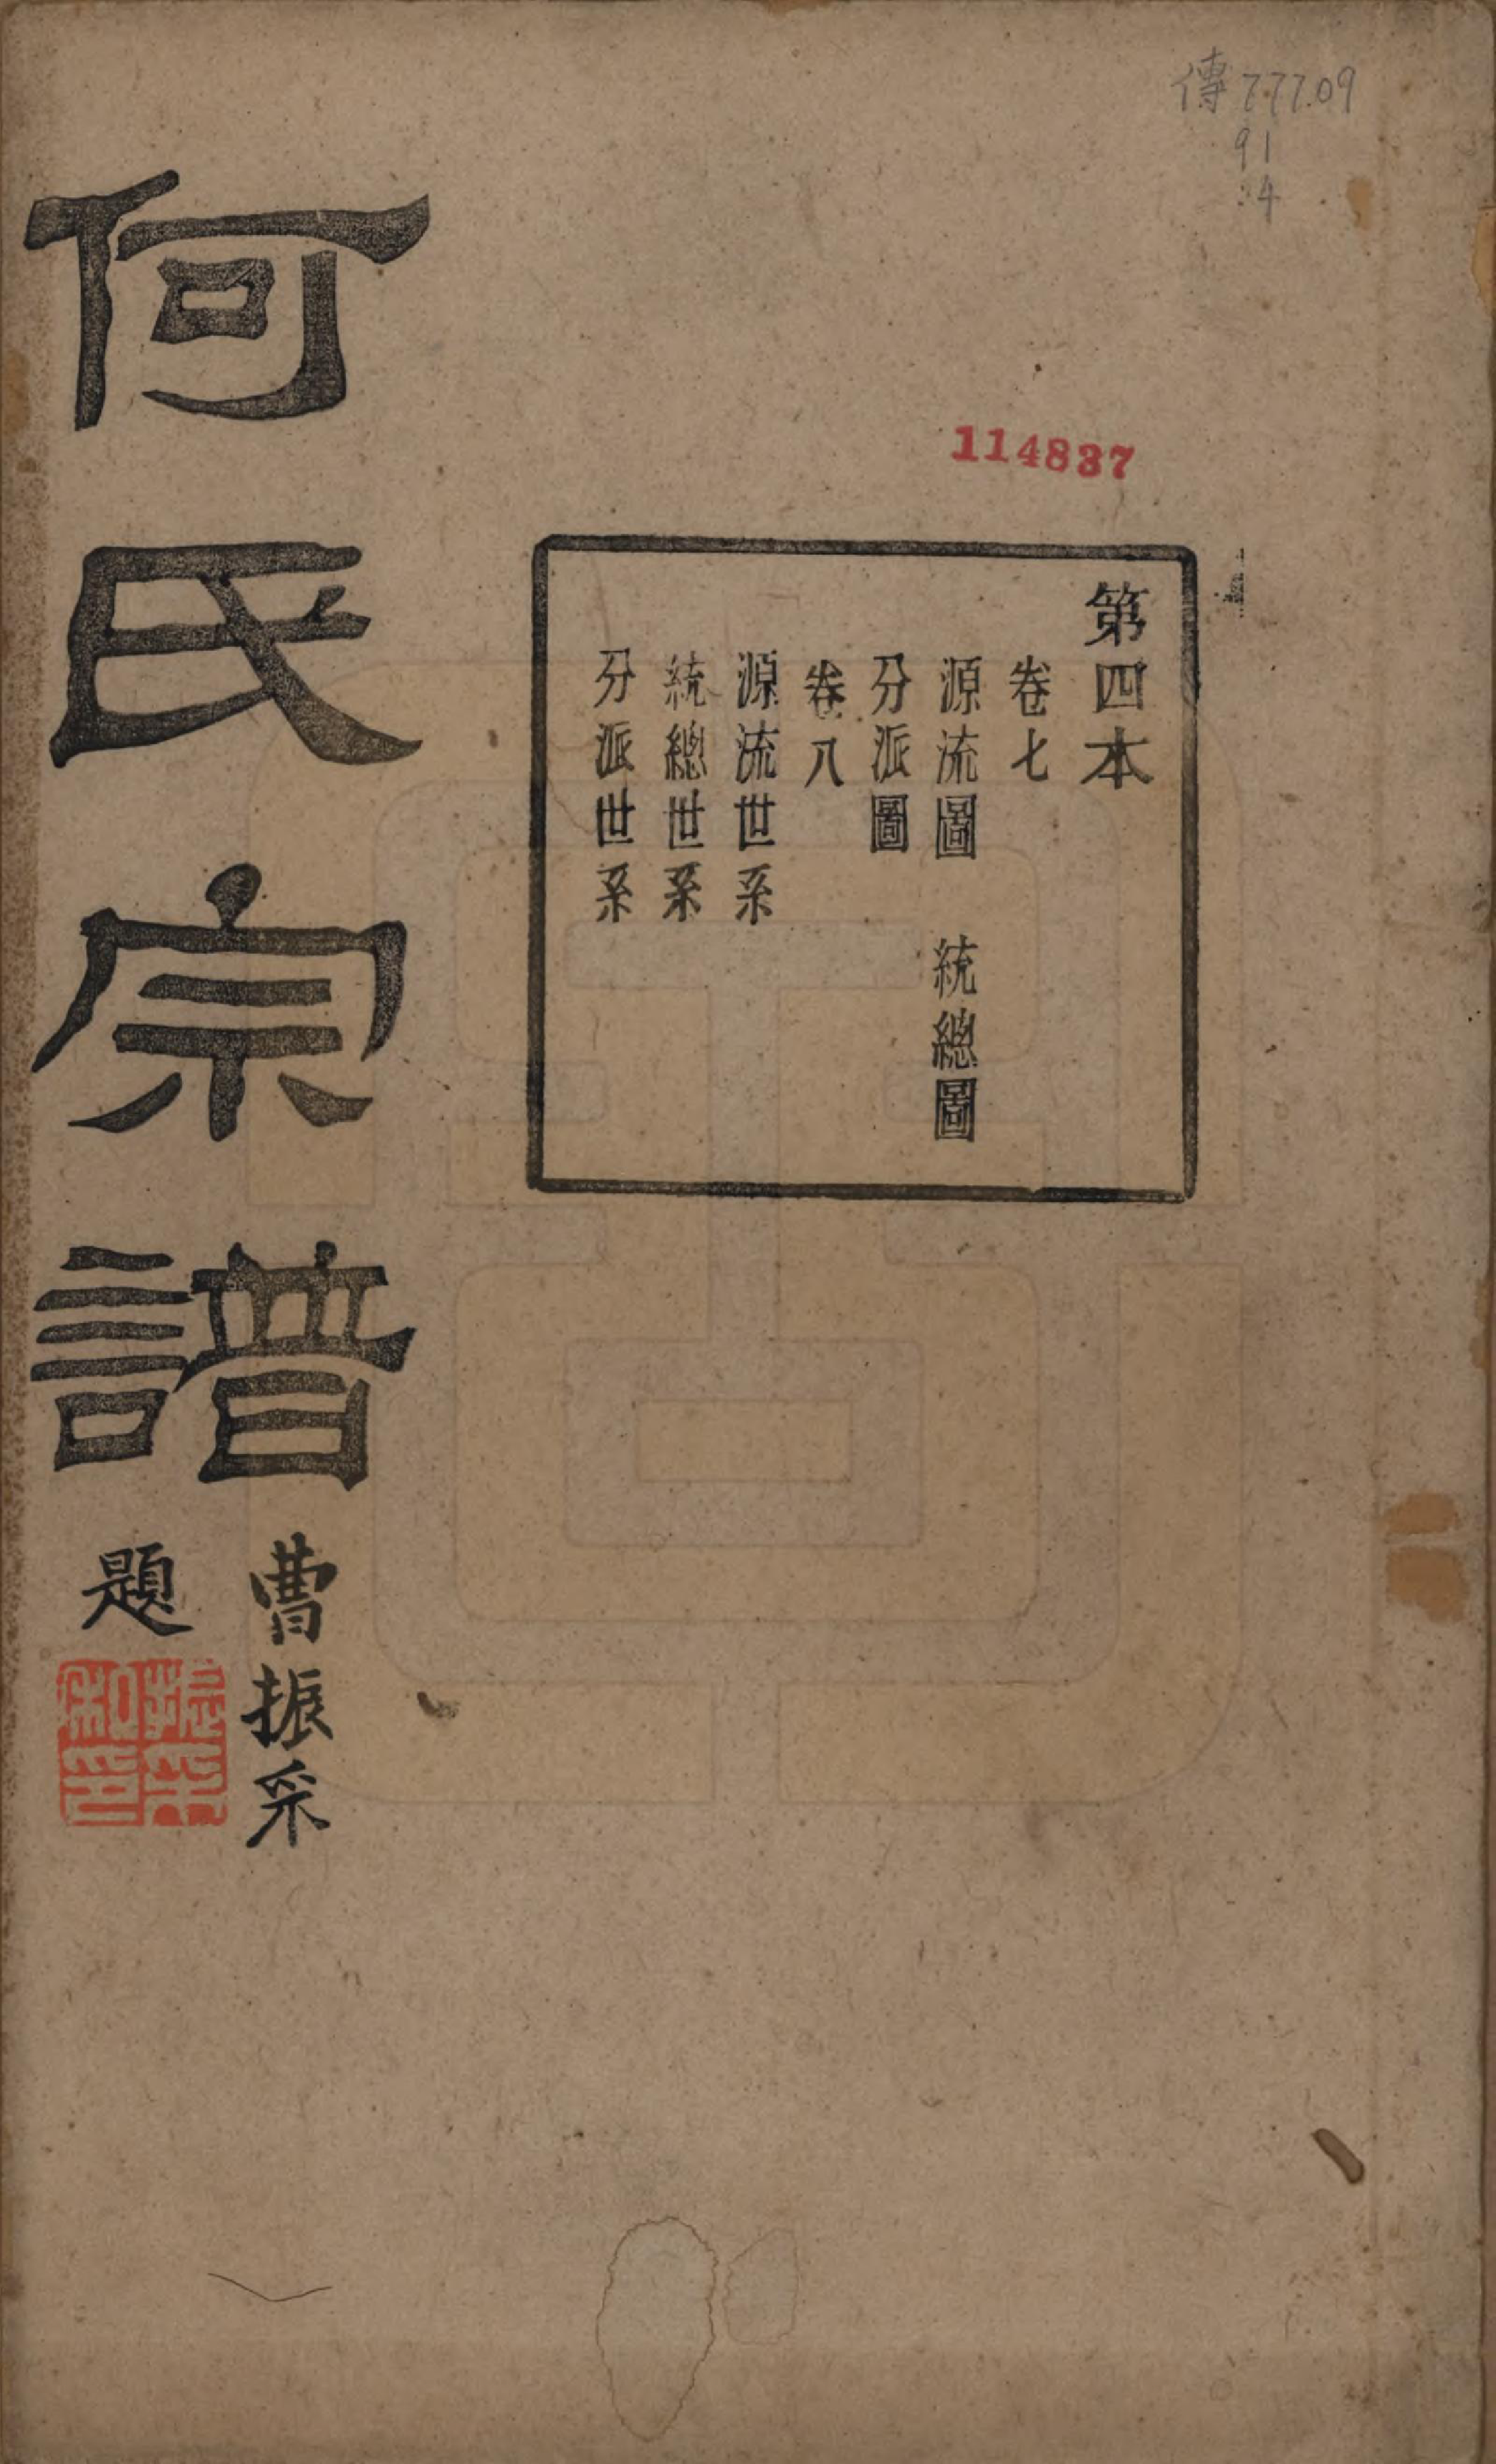 傳777.09
91
:4
114837
第四本
卷七
源流圖　統總圖
分派圖
卷八
源流世系
統總世系
分派世系
何氏宗譜
曹振采
題
振采私印